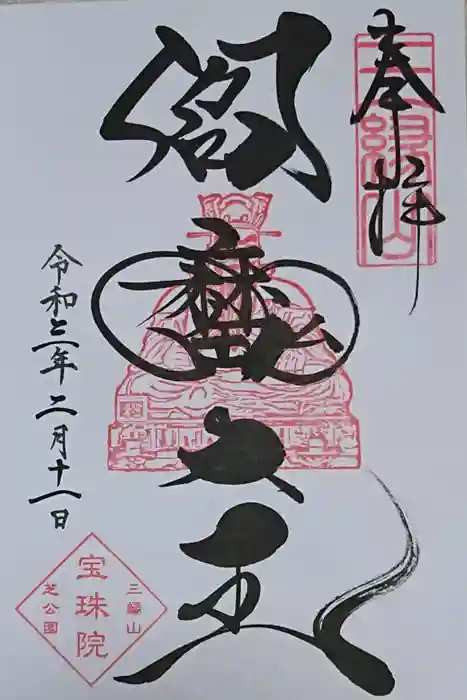 奉拝
三縁山
閻魔大王
令和三年二月十一日
三縁山
宝珠院
芝公園